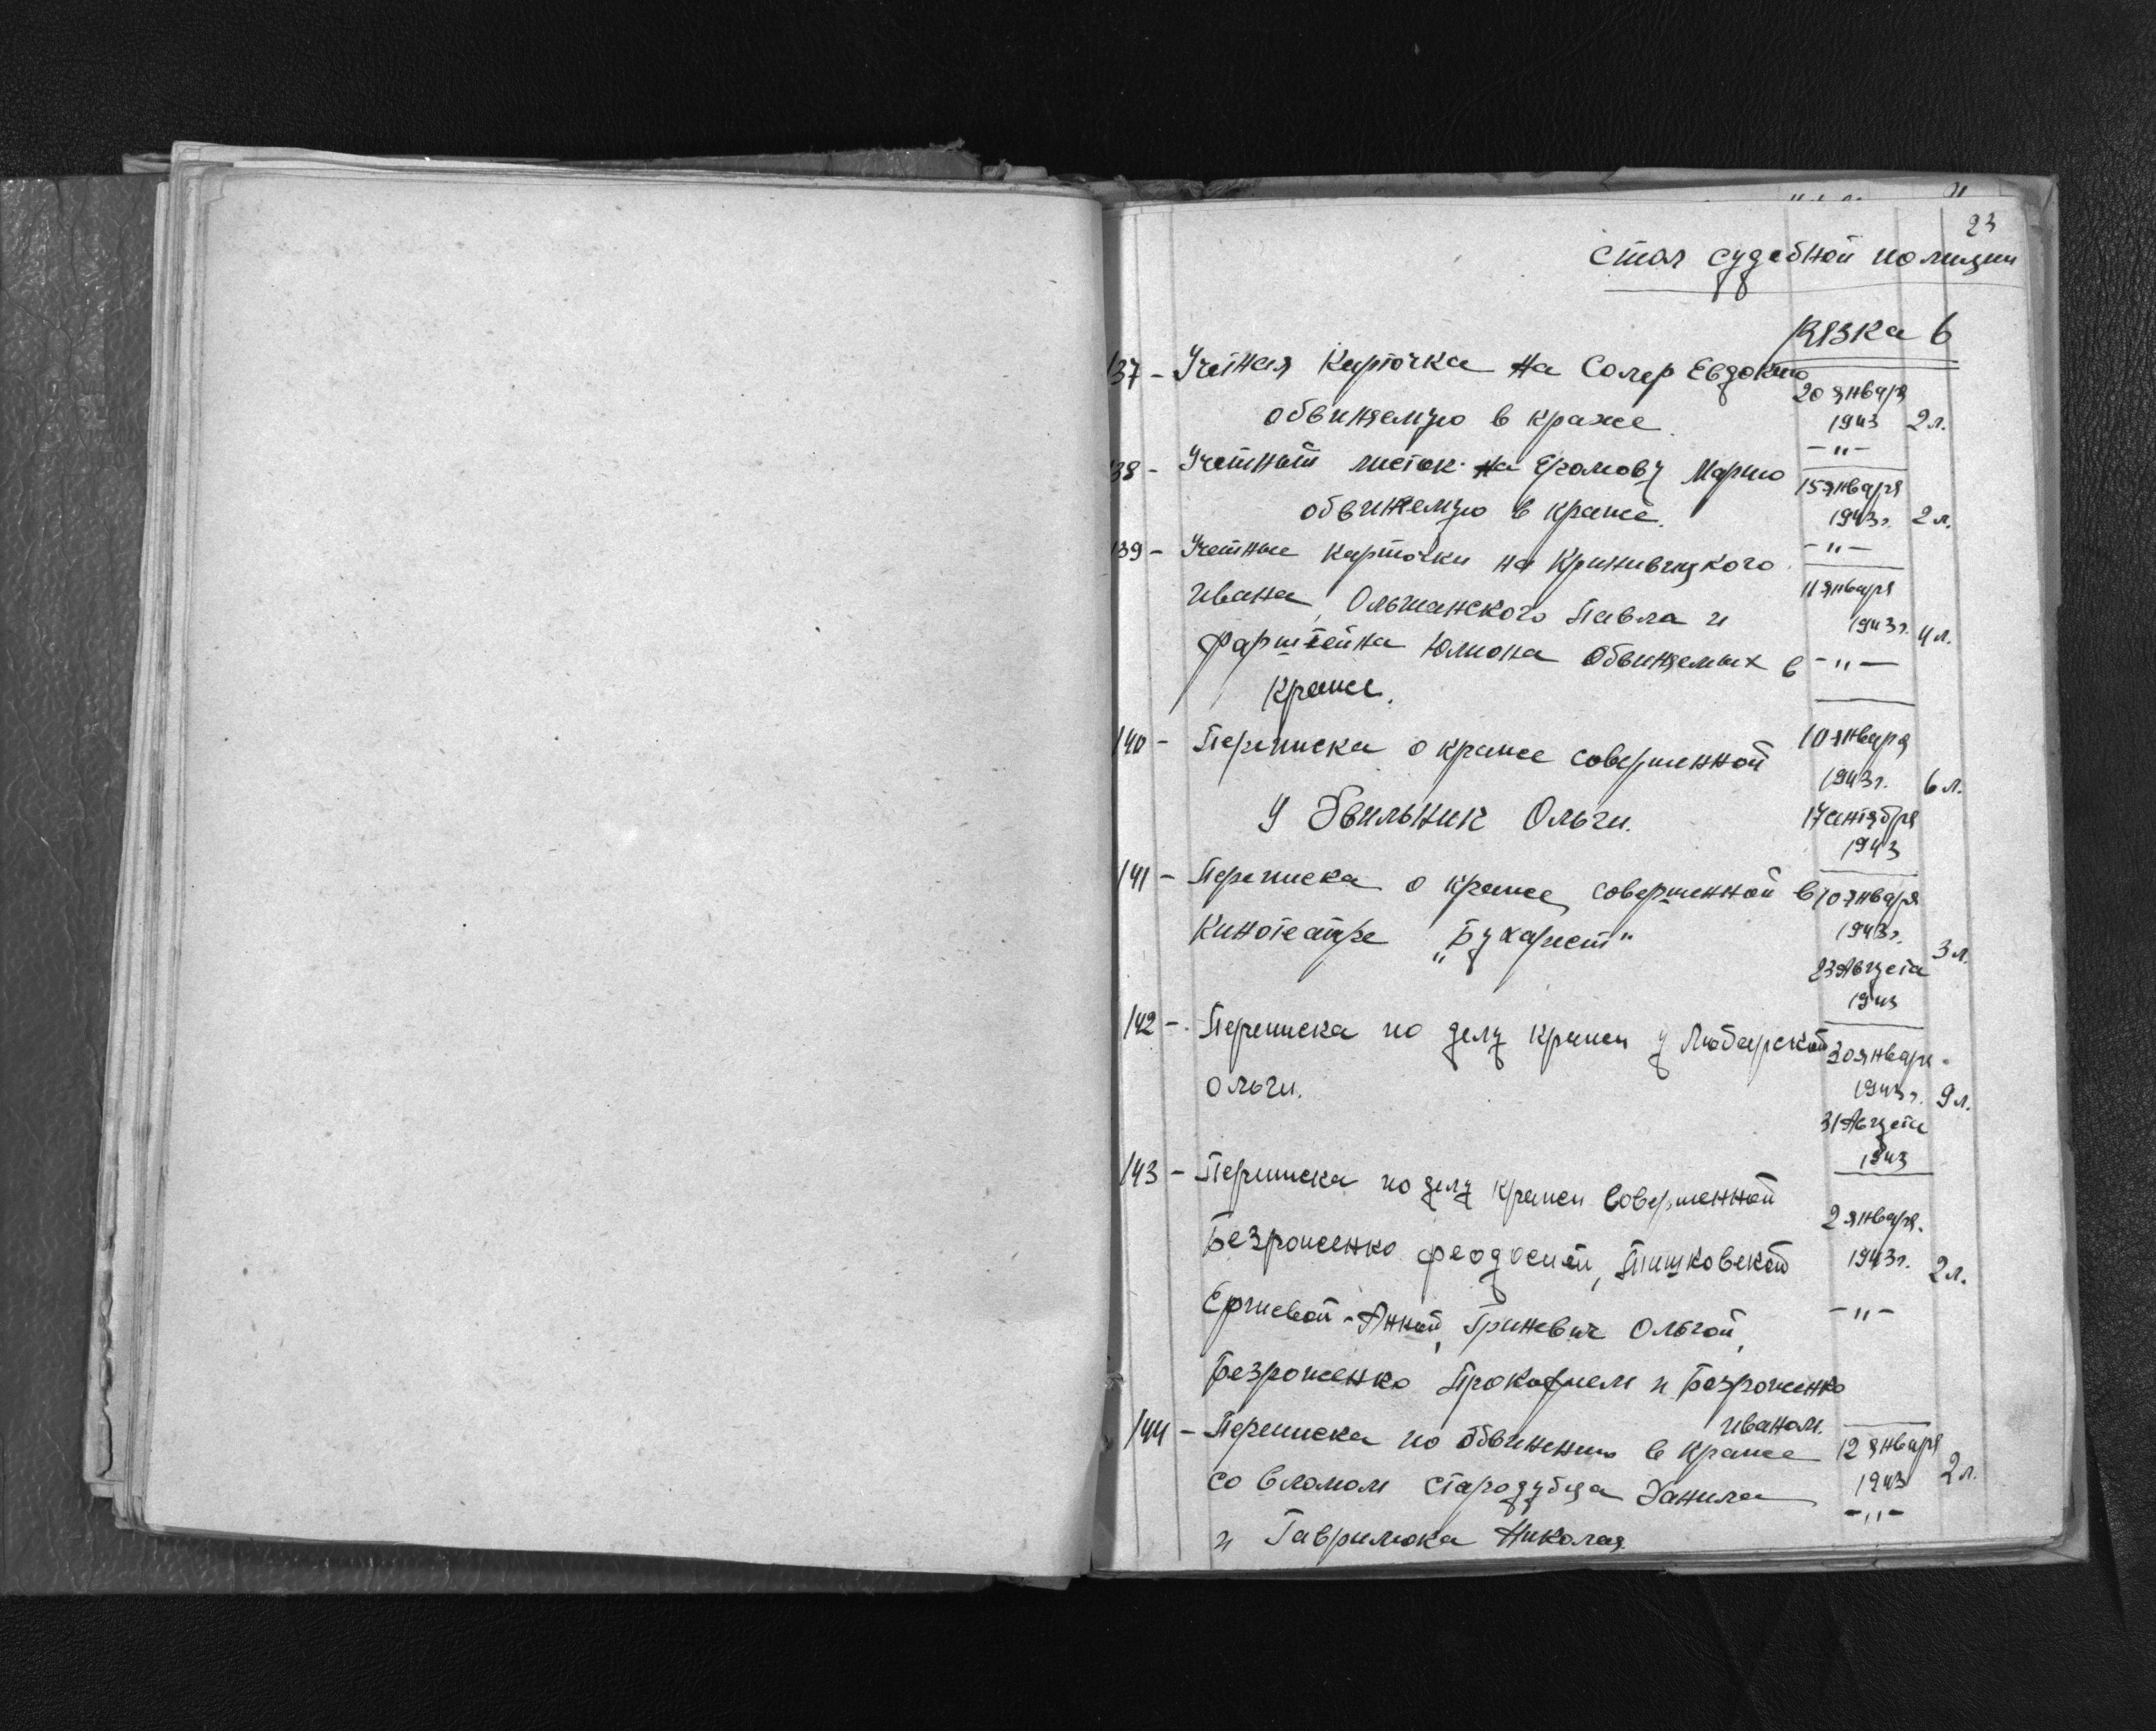 23
Стол судебной полиции
Вязка 6
137 - Учетная карточка на Солер Евдокию 20 января
обвиняемую в краже. 1943 2 л.
- " -
138 - Учетный листок на Ерамову Марию 15 января
обвиняемую в краже. 1943 г. 2 л.
139 - Учетные карточки на - " -
Ивана, Ольшанского Павла и 11 января
1943 г. 4 л.
Фарштейна Юлиона обвиняемых в - " -
краже.
140 - Переписка о краже совершенной 10 января
1943 г. 6 л.
у Ольги. 17 сентября
1943
141 - Переписка о краже, совершенной в 10 января
кинотеатре „Бухарест" 1943 г.
3 л.
23 Августа
1943
142 - Переписка по делу кражи у Любарской 20 января
Ольги. 1943 г. 9 л.
31 Августа
1943
143 - Переписка по делу кражи совершенной
2 января
Безроженко Феодосией, Тишковской 1943 г. 2 л.
Ергиевой - Анной, Гриневич Ольгой, - " -
Безроженко Прокофием и Безроженко
Иваном.
144 - Переписка по обвинению в краже 12 января
со взломом Стародубца Данила 1943 2 л.
- " -
и Гаврилюка Николая